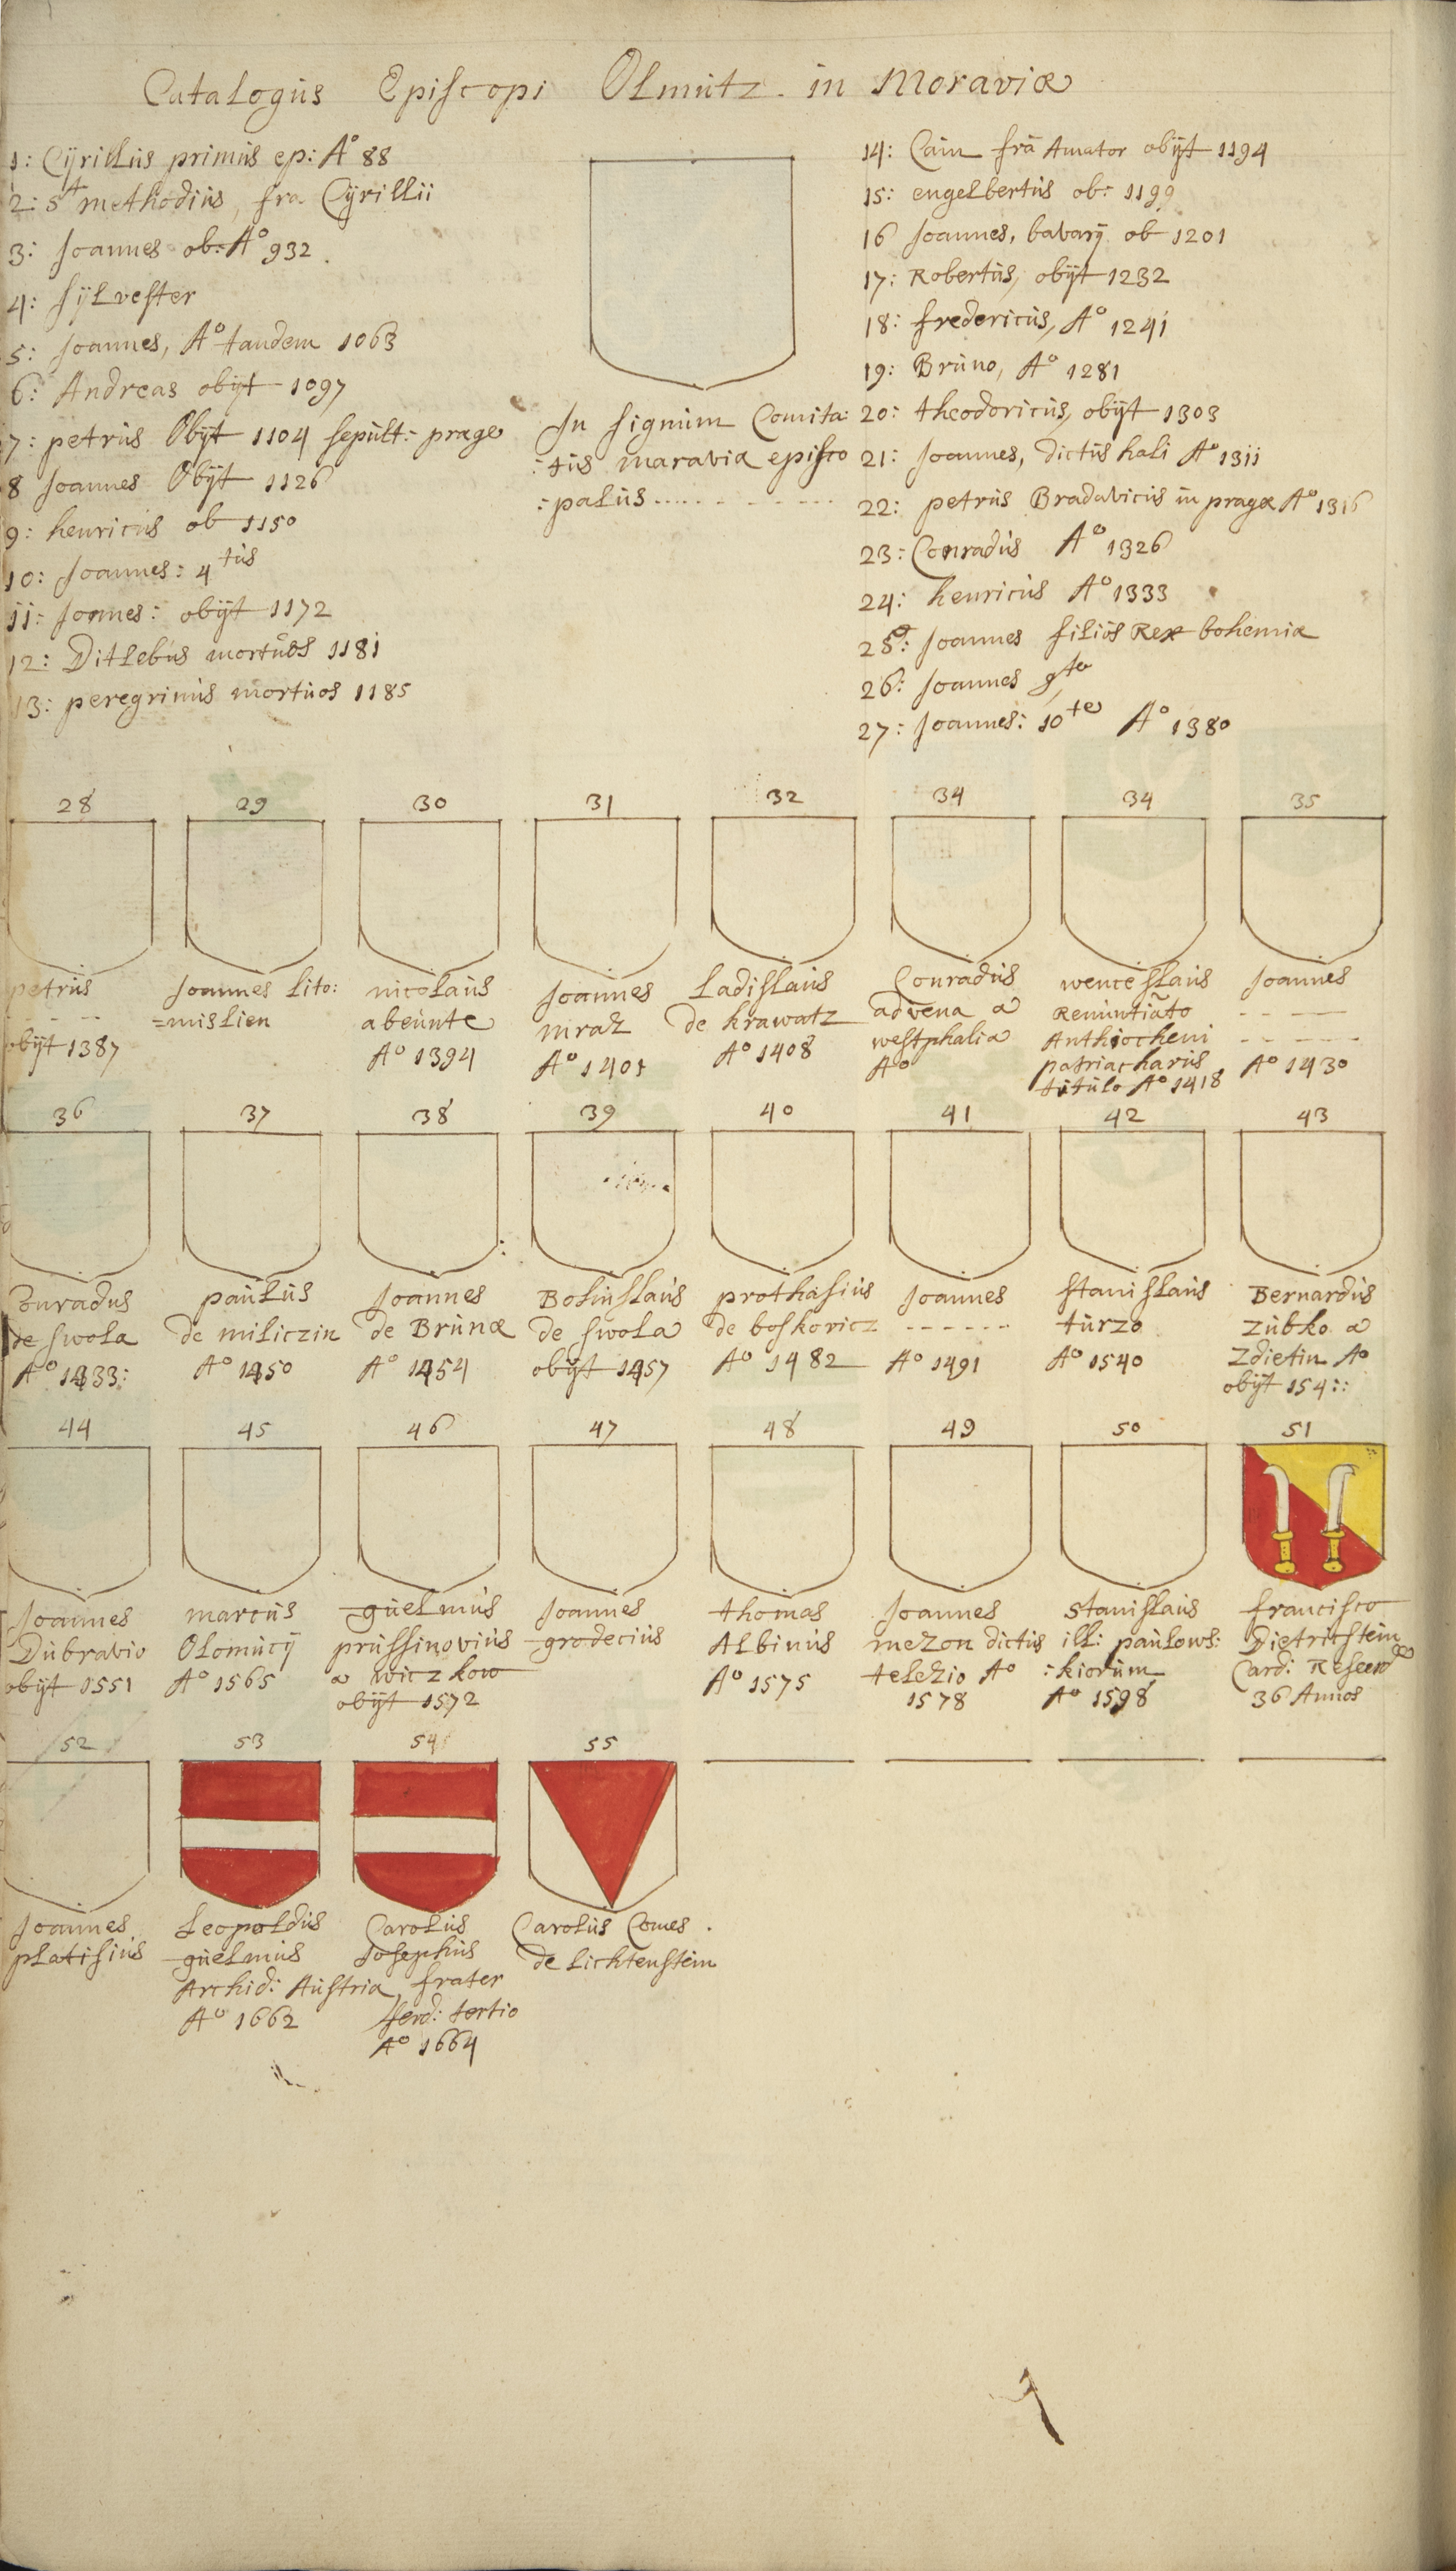 Catalogus Episcopi Olmutz. in Moraviæ
1: Cÿrillus primus ep: A° 88
2: St methodius, fra Cÿrillii
3: Joannes ob: A° 932.
4: Sÿlvester
5: Joannes, A° tandem 1063
6: Andreas obÿt 1097
7: petrus Obÿt 1104 sepult: prage
8 Joannes Obÿt 1126
9: henricus ob 1150
10: Joannes: 4tus
11: Jonnes: obÿt 1172
12: Ditlebus mortuos 1181
13: peregrinus mortuos 1185
In signum Comita:
:tis maravia episco
:palus
14: Cain fra Amator obÿt 1194
15: engelbertus ob: 1199
16 Joannes, bavarÿ ob 1201
17: Robertus, obÿt 1232
18: fredericus, A° 1241
19: Bruno, A° 1281
20: theodoricus, obÿt 1303
21: Joannes, dictus hali A° 1311
22: petrus Bradavicis in pragæ A° 1316
23: Conradus A° 1326
24: henricus A° 1333
25: Joannes filios Rex bohemiæ
26: Joannes 9te
27: Joannes: 10te A° 1380
28 29 30 31 32 34 34 35
petrus
obÿt 1387
Joannes lito:
=mislien
nicolaus
abeunte
A° 1394
Joannes
mraz
A° 1401
Ladislaus
de krawatz
A° 1408
Conradus
advena a
westphalia
A°
wenceslaus
Renuntiãto
Anthiocheni
patriacharus
titulo A° 1418
Joannes
A° 1430
36 37 38 39 40 41 42 43
Conradus
de swola
A° 1433:
paulus
de miliczin
A° 1450
Joannes
de Brunæ
A° 1454
Bohuslaus
de swola
obÿt 1457
prothasius
de boskovicz
A° 1482
Joannes
A° 1491
stanislaus
turzo
A° 1540
Bernardus
Zubko a
Zdietin A°
obÿt 154::
44 45 46 47 48 49 50 51
Joannes
Dubravio
obÿt 1551
marcus
Olomucÿ
A° 1565
guelmus
prussinovius
a wiczkow
obÿt 1572
Joannes
grodecius
thomas
Albinus
A° 1575
Joannes
mezon dictus
telezio A°
1578
Stanislaus
ill: paulows:
:kiorum
A° 1598
francisco
Dietrichstein
Card:
36 Annos
52 53 54 55
Joannes
platisius
Leopoldus
guelmus
Archid: Austria
A° 1662
Carolus
Josephus
frater
ferd: tertio
A° 1664
Carolus Comes
de lichtenstein